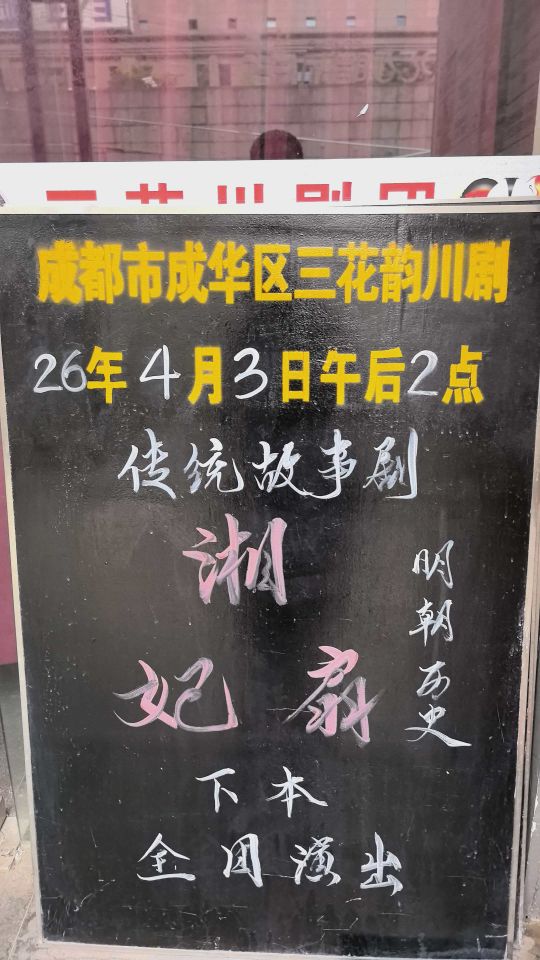 三花川剧团
成都市成华区三花韵川剧
26年4月3日午后2点
传统故事剧
湘
妃扇
明朝历史
下本
全团演出